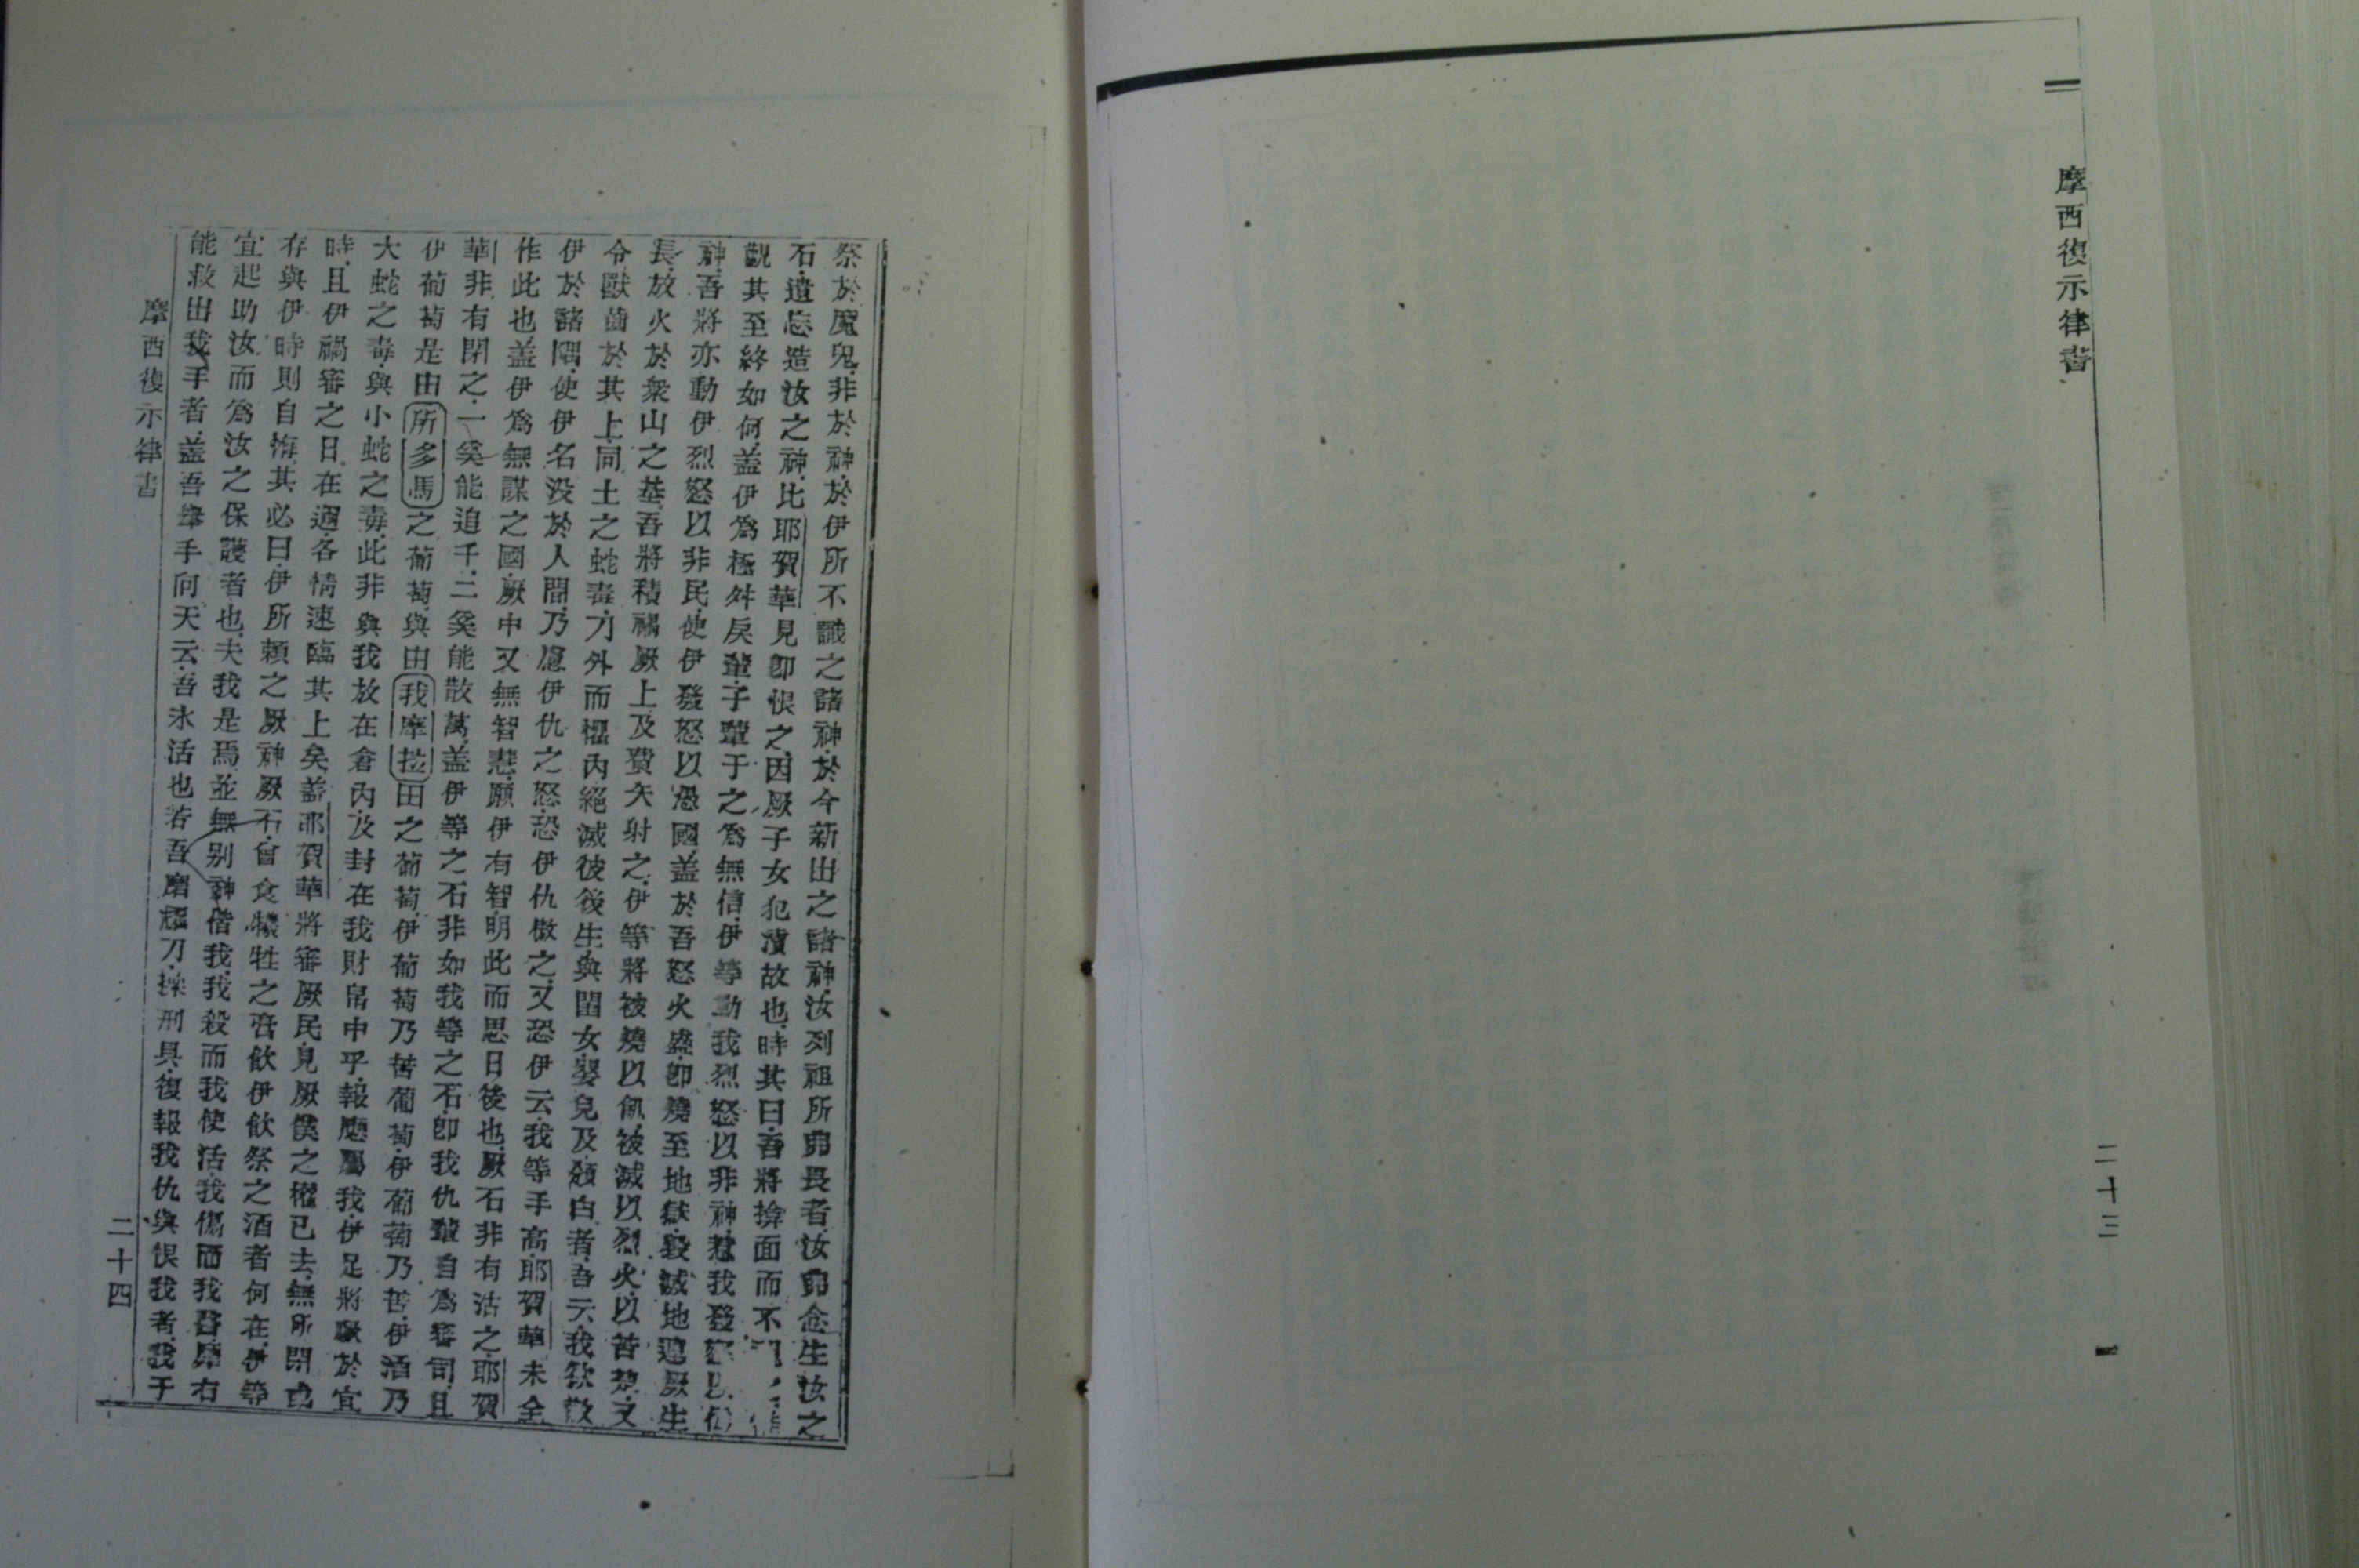 摩西復示律書
二十三
祭於魔鬼.非於神.於伊所不識之諸神.於今新出之諸神.汝列祖所畏者.汝念生汝之
石.遺忘造汝之神.比耶賀華見即恨之.因厥子女犯瀆故也.時其曰.吾將揜面而不
觀其至終如何.盖伊為極舛戾輩.子輩于之為無信.伊等動我烈怒以非神.惹我發
神.吾將亦動伊烈怒以非民.使伊發怒以愚國.盖於吾怒火盛.即燒至地獄.毀滅地連厥生
長.放火於衆山之基.吾將積禍厥上.及費矢射之.伊等將被燒以飢.被滅以烈火.以苦楚.又
令獸齒於其上.同土之蛇毒.刀外而懼內絕滅彼後生.與閨女.嬰兒及頒白者.吾云.我欲散
伊於諸隅.使伊名没於人間.乃慮伊仇之怒.恐伊仇傲之.又恐伊云.我等手高.耶賀華未全
作此也.盖伊為無謀之國.厥中又無智慧.願伊有智.明此而思日後也.厥石非有沽之.耶賀
華非有閉之.一奚能追千.二奚能散萬.盖伊等之石非如我等之石.即我仇輩自為審司.且
伊葡萄是由所多馬之葡萄.與由我摩拉田之葡萄.伊葡萄乃苦葡萄.伊葡萄乃苦.伊酒乃
大蛇之毒.與小蛇之毒.此非與我放在倉內.及封在我財帛中乎.報應屬我.伊足將蹶於宜
時.且伊禍審之日.在邇.各情速臨其上矣.盖耶賀華將審厥民.見厥僕之權已去.無所閉或
存.與伊時則自悔.其必曰.伊所賴之厥神厥石.曾食犧牲之膏.飲伊飲祭之酒者何在.伊等
宜起助汝.而為汝之保護者也.夫我是焉.並無别神偕我.我殺而我使活.我傷而我醫.靡有
能救出我手者.盖吾舉手向天云.吾永活也.若吾磨耀刀.操刑具.復報我仇.與恨我者.我于
摩西復示律書
二十四